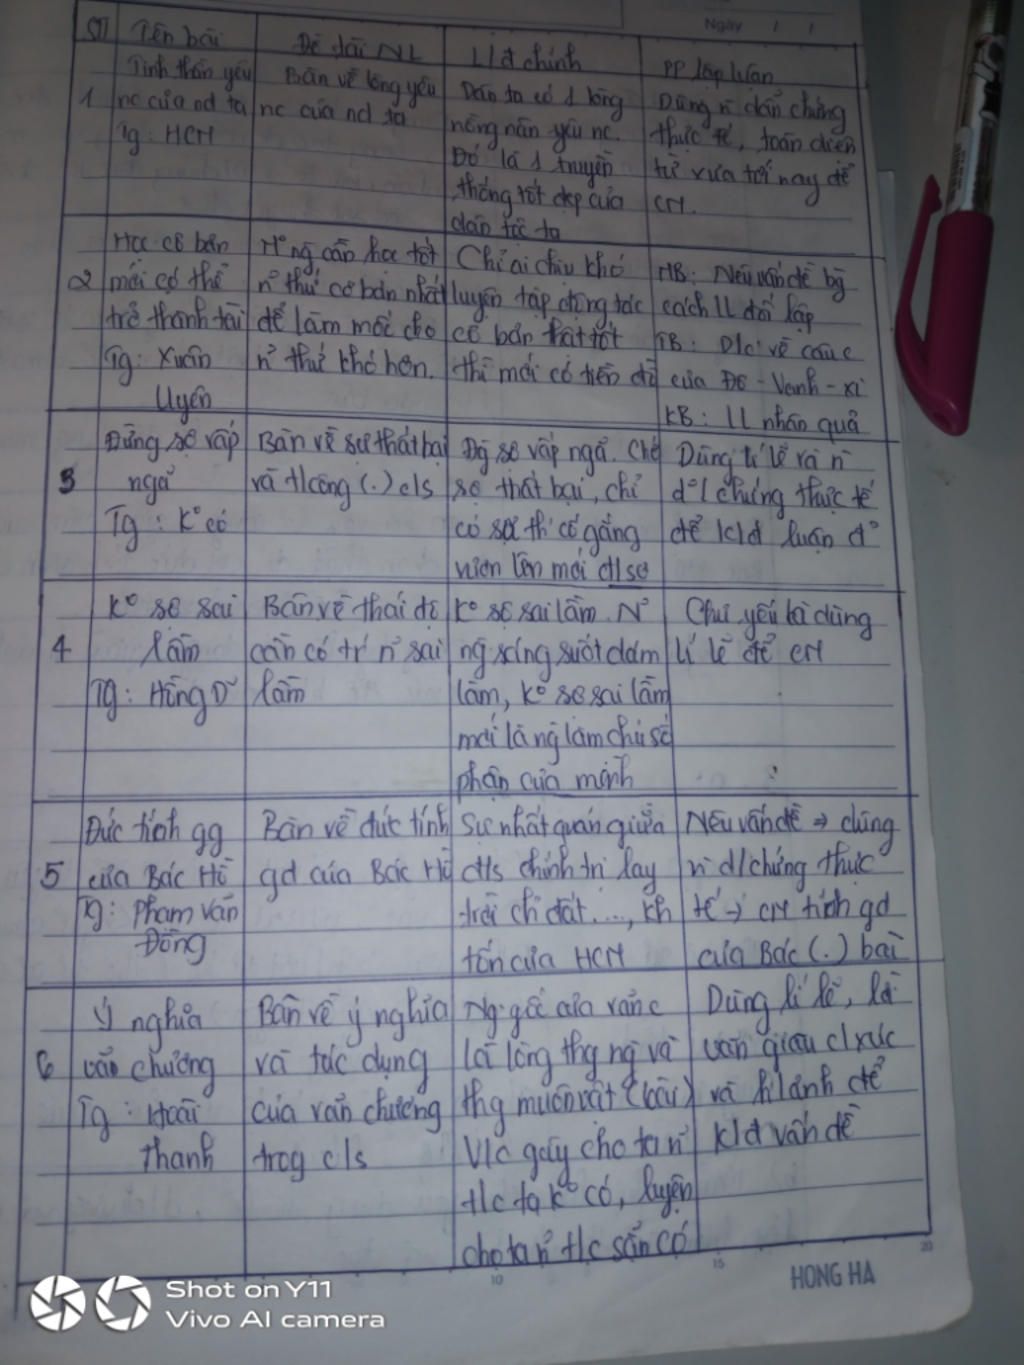 Ngày / /
TT Tên bài Đề tài NL Lđ chính PP lập luận
1
Tinh thần yêu
nc của nd ta
Tg: HCM
Bàn về lòng yêu
nc của nd ta
Dân ta có 1 lòng
nồng nàn yêu nc.
Đó là 1 truyền
thống tốt đẹp của
dân tộc ta
Dùng n~ dẫn chứng
thực tế, toàn diện
từ xưa tới nay để
CM.
2
Học cơ bản
mới có thể
trở thành tài
Tg: Xuân
Uyên
ng cần học tốt
n~ thứ cơ bản nhất
để làm mốc cho
n~ thứ khó hơn.
Chỉ ai chịu khó
luyện tập động tác
cơ bản thật tốt
thì mới có tiền đồ
MB: Nêu vấn đề bg
cách LL đối lập
TB: D/c về câu c
của Đơ - Vanh - xi
KB: LL nhân quả
3
Đừng sợ vấp
ngã
Tg: K° có
Bàn về sự thất bại
và t/công (.) c/s
Đg sợ vấp ngã. Chớ
sợ thất bại, chỉ
có sợ th' cố gắng
vươn lên mới
Dùng lí lẽ và n~
d/chứng thực tế
để k/đ luận đ°
4
K° sợ sai
lầm
Tg: Hồng D~
Bàn về thái độ
cần có tr' n~ sai
lầm
K° sợ sai lầm. N~
ng sáng suốt dám
làm, k° sợ sai lầm
mới là ng làm chủ số
phận của mình
Chủ yếu là dùng
lí lẽ để CM
5
Đức tính gd
của Bác Hồ
Tg: Phạm Văn
Đồng
Bàn về đức tính
gd của Bác Hồ
Sự nhất quán giữa
đ/s chính trị lay
trời ch đất ...., kh
tốn của HCM
Nêu vấn đề → dùng
n~ d/chứng thực
tế → CM tính gd
của Bác (.) bài
6
Ý nghĩa
văn chương
Tg: Hoài
Thanh
Bàn về ý nghĩa
và tác dụng
của văn chương
trog c/s
Ng. gốc của văn c
là lòng thg ng và
thg muôn vật (loài)
V/c gây cho ta n~
t/c ta k° có, luyện
cho ta n~ t/c sẵn có
Dùng lí lẽ, lời
văn giàu c/xúc
và h/ảnh để
k/đ vấn đề
10 15 20
HONG HA
Shot on Y11
Vivo AI camera